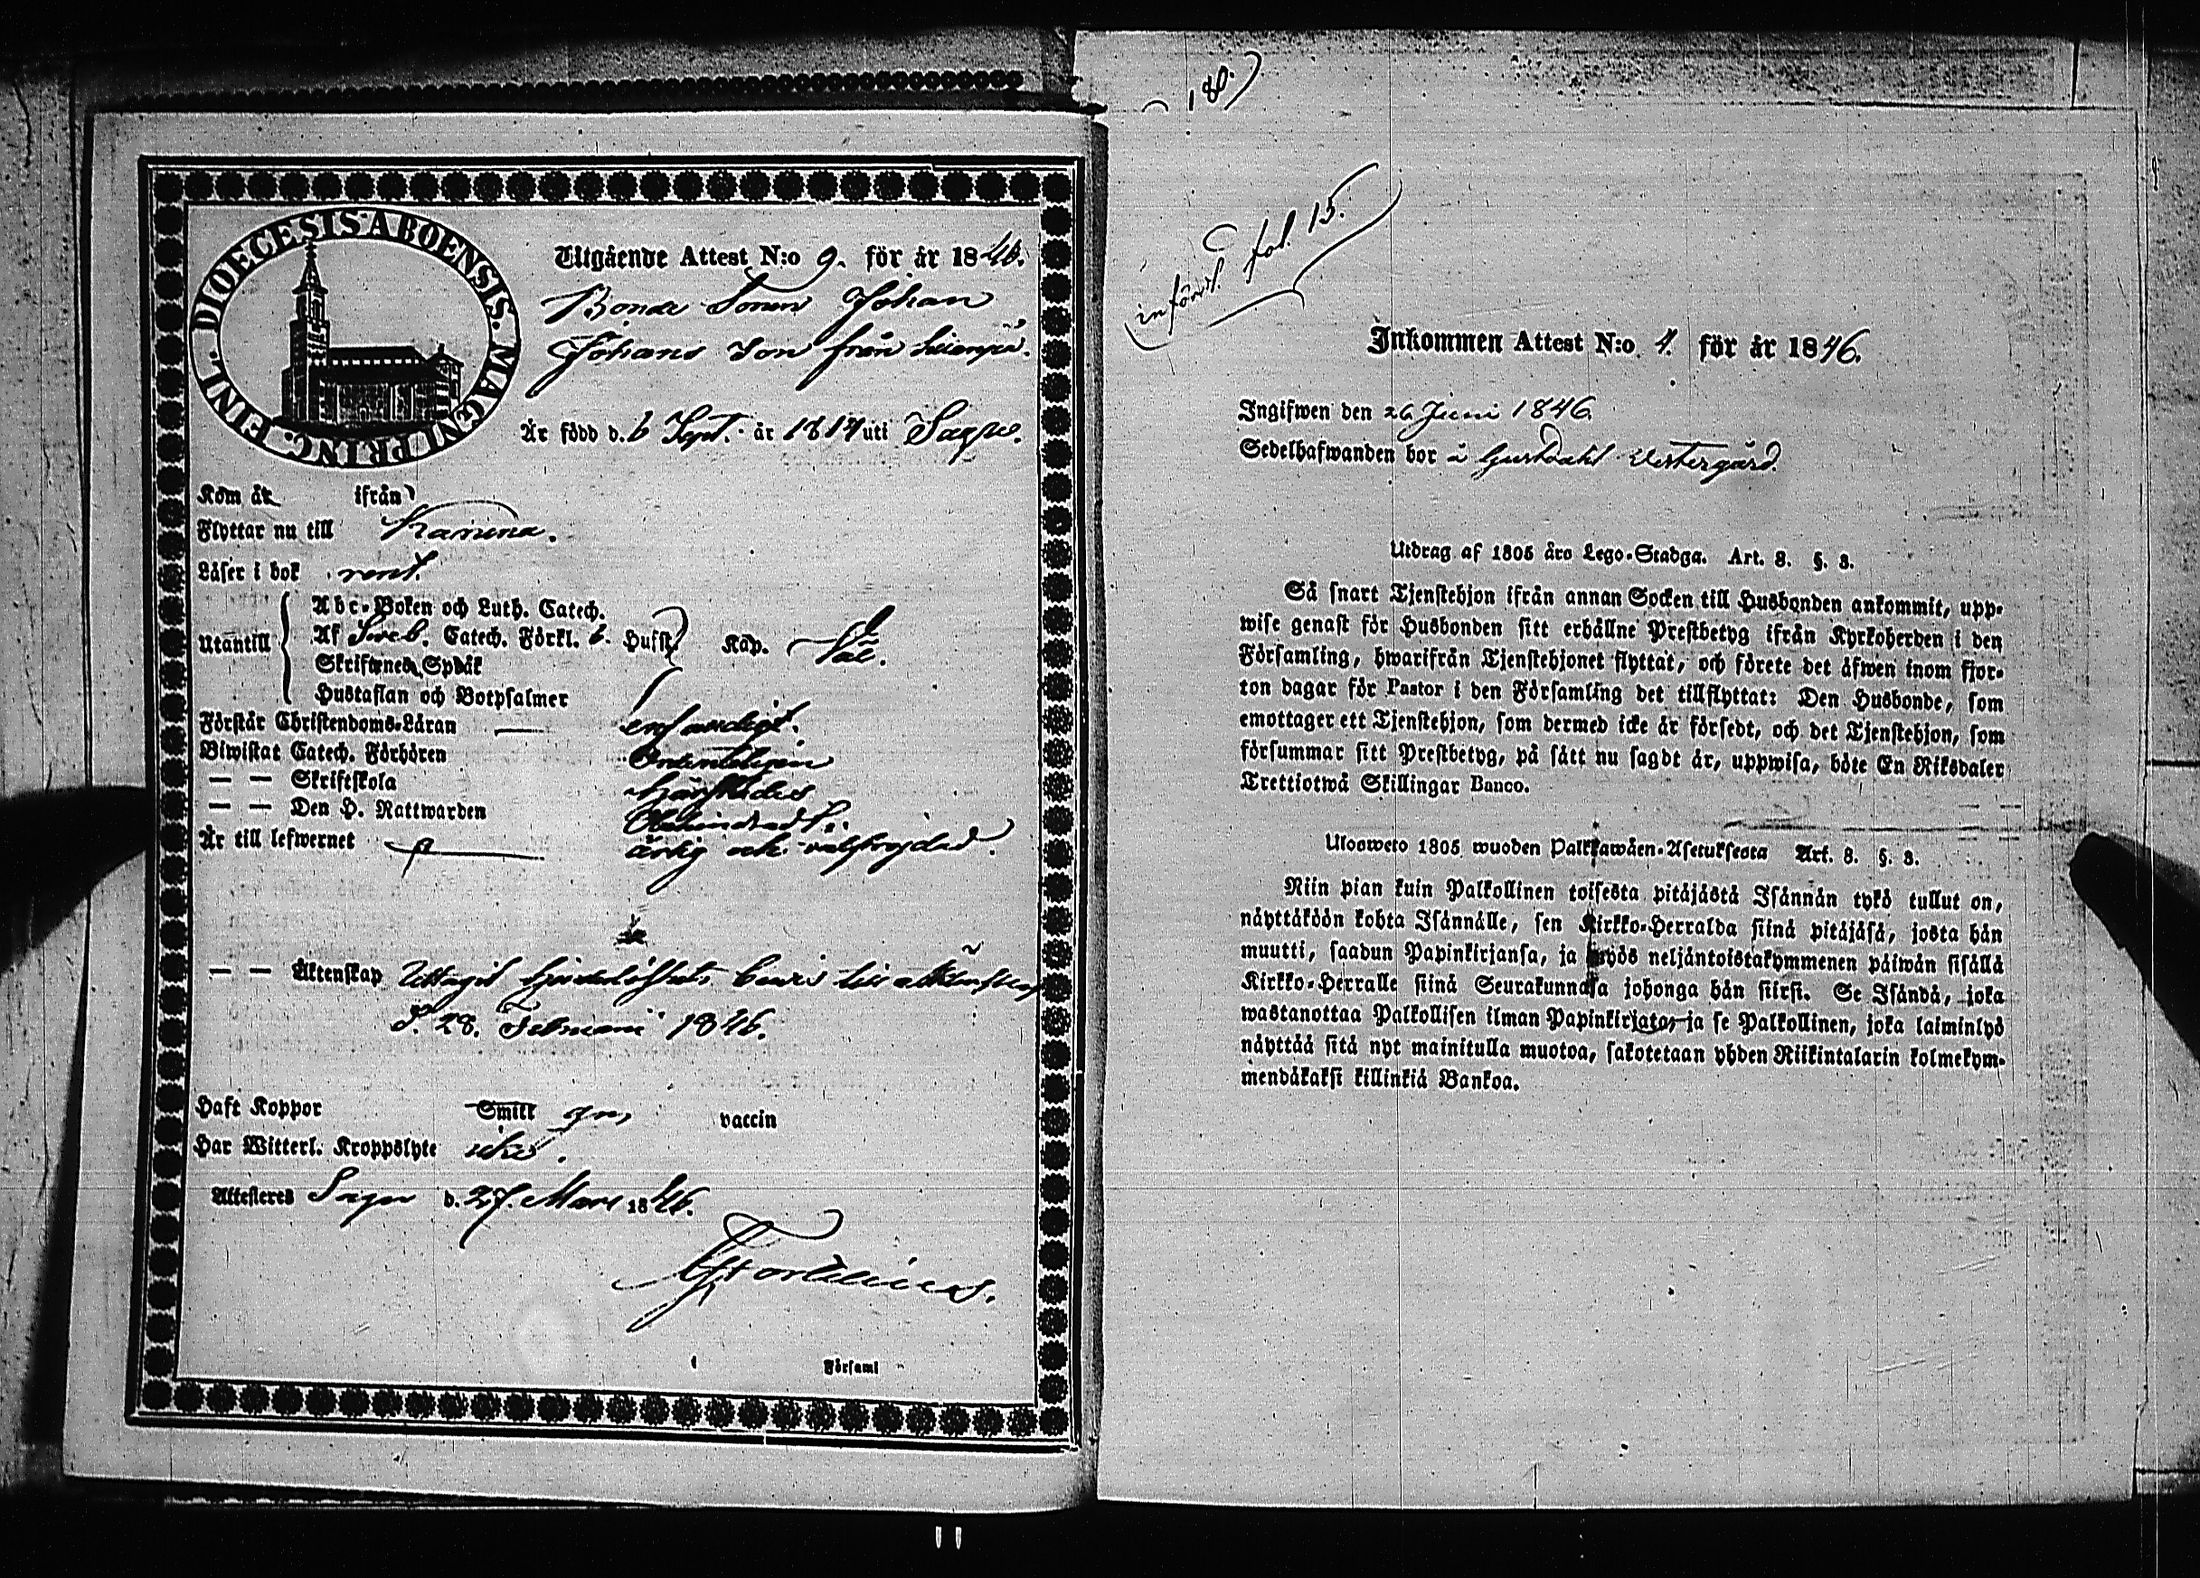 DIOECESIS ABOENSIS. MAGNI PRINC. FINL.
Utgående Attest N:o 9. för år 1846.
Bonde Sonen Johan
Johans Son från
Är född d. 6 Sept. år 1814 uti Sagu.
Kom år ifrån
Flyttar nu till Karuna.
Läser i bok rent.
Utantill
Abc-Boken och Luth. Catech.
Af Sveb. Catech. Förkl. 6. Hufst. Kap.
Skriftenes Språk
Hustaflan och Botpsalmer
Förstår Christendoms-Läran enfaldigt.
Biwistat Catech. Förhören Ordenteligen
— — Skriftskola
— — Den H. Nattwarden Obehindradt.
Är till lefwernet ärlig och välfrejdad.
— — Äktenskap Uttagit hinderslöshets bevis till äktenskap
d. 28. Februari 1846.
Haft Koppor Smitt gn, vaccin
Har Witterl. Kroppslyte icke.
Attesteres Sagu d. 27. Mars 1846.
Församl
180.
införd. fol. 15.
Inkommen Attest N:o 4. för år 1846.
Ingifwen den 26 Juni 1846.
Sedelhafwanden bor å Gustdahl Westergård.
Utdrag af 1805 års Lego-Stadga. Art. 8. §. 3.
Så snart Tjenstehjon ifrån annan Socken till Husbonden ankommit, upp-
wise genast för Husbonden sitt erhållne Prestbetyg ifrån Kyrkoherden i den
Församling, hwarifrån Tjenstehjonet flyttat, och förete det äfwen inom fjor-
ton dagar för Pastor i den Församling det tillflyttat: Den Husbonde, som
emottager ett Tjenstehjon, som dermed icke är försedt, och det Tjenstehjon, som
försummar sitt Prestbetyg, på sätt nu sagdt är, uppwisa, böte En Riksdaler
Trettiotwå Skillingar Banco.
Ulosweto 1805 wuoden Palkkawäen-Asetuksesta Art. 8. §. 3.
Niin pian kuin Palkollinen toisesta pitäjästä Isännän tykö tullut on,
näyttäköön kohta Isännälle, sen Kirkko-Herralda siinä pitäjäsä, josta hän
muutti, saadun Papinkirjansa, ja myös neljäntoistakymmenen päiwän sisällä
Kirkko-Herralle siinä Seurakunnasa johonga hän siirsi. Se Isändä, joka
wastanottaa Palkollisen ilman Papinkirjata, ja se Palkollinen, joka laiminlyö
näyttää sitä nyt mainitulla muotoa, sakotetaan yhden Riikintalarin kolmekym-
mendäkaksi killinkiä Bankoa.